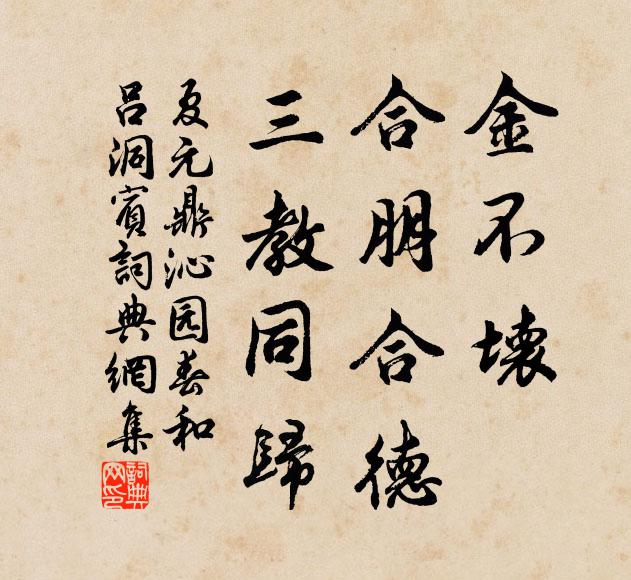 金不壞
合朋合德
三教同歸
夏元鼎沁园春和
吕洞賓詞典網集
詞典网印